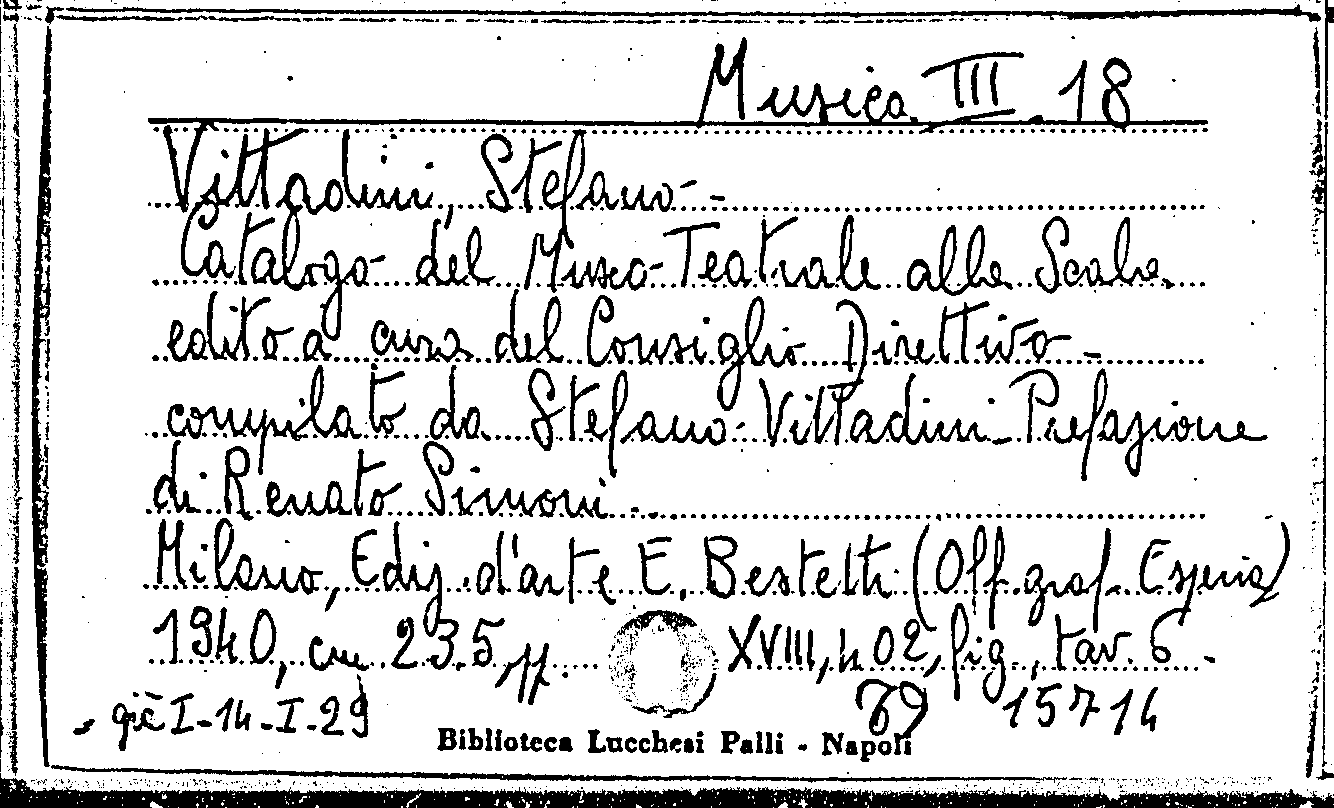 Musica III. 18
Vittadini, Stefano -
Catalogo del Museo Teatrale alla Scala
edito a cura del Consiglio Direttivo -
compilato da Stefano Vittadini - Prefazione
di Renato Simoni -
Milano, Ediz. d'arte E. Bestetti (Off. graf. Esperia)
1940, cm 23.5, pp. XVIII, 402, fig., tav. 6 -
- già I-14-I-29 15714
Biblioteca Lucchesi Palli - Napoli